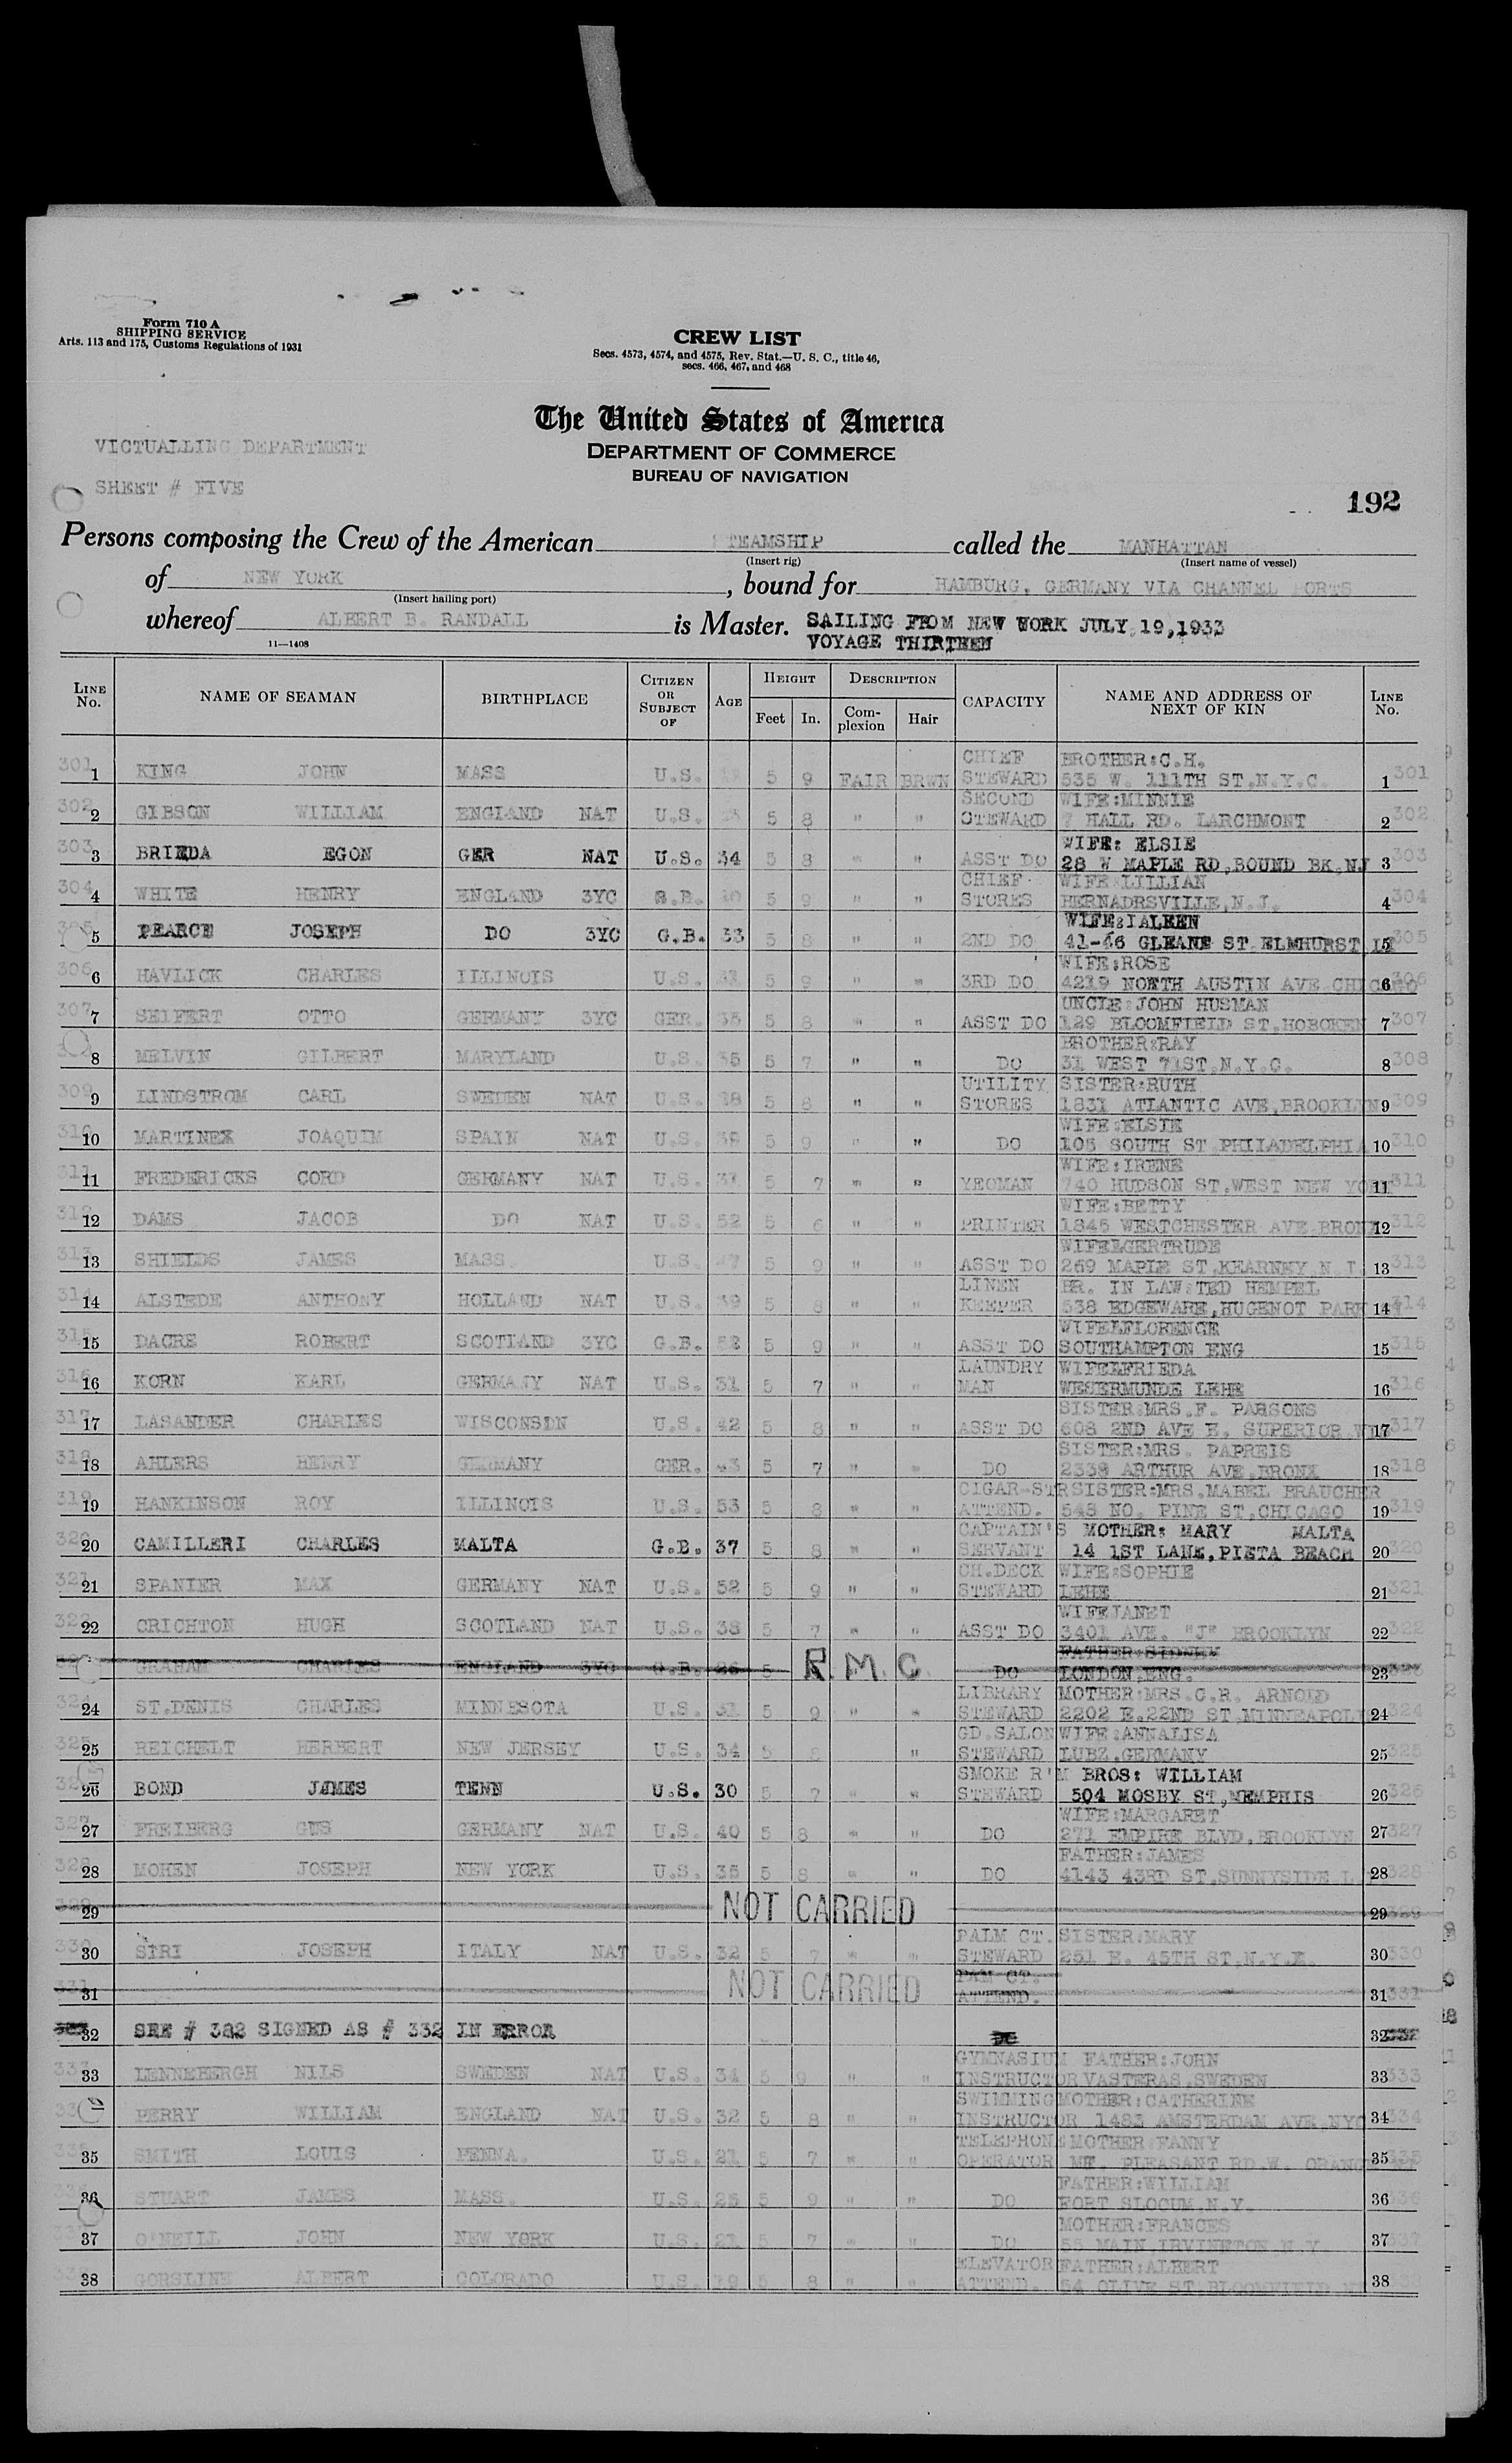 Form 710 A
SHIPPING SERVICE
Arts. 113 and 175, Customs Regulations of 1931
CREW LIST
Secs. 4573, 4574, and 4575, Rev. Stat.—U. S. C., title 46,
secs. 466, 467, and 468
The United States of America
DEPARTMENT OF COMMERCE
BUREAU OF NAVIGATION
VICTUALLING DEPARTMENT
SHEET # FIVE
192
Persons composing the Crew of the American TEAMSHIP called the MANHATTAN
(Insert rig) (Insert name of vessel)
of NEW YORK , bound for HAMBURG, GERMANY VIA CHANNEL PORTS
(Insert hailing port)
whereof ALBERT B. RANDALL is Master. SAILING FROM NEW WORK JULY 19,1933
11—1408 VOYAGE THIRTEEN
LINE No. NAME OF SEAMAN BIRTHPLACE CITIZEN OR SUBJECT OF AGE HEIGHT Feet In. DESCRIPTION Complexion Hair CAPACITY NAME AND ADDRESS OF NEXT OF KIN LINE No.
CHIEF BROTHER:C.H.
301 1 KING JOHN MASS U.S. 5 9 FAIR BRWN STEWARD 535 W. 111TH ST.N.Y.C. 1 301
SECOND WIFE:MINNIE
302 2 GIBSON WILLIAM ENGLAND NAT U.S. 5 8 " " STEWARD 7 HALL RD. LARCHMONT 2 302
WIFE: ELSIE
303 3 BRIEDA EGON GER NAT U.S. 34 5 8 " " ASST DO 28 W MAPLE RD,BOUND BK.NJ 3 303
CHIEF WIFE:LILLIAN
304 4 WHITE HENRY ENGLAND 3YC G.B. 5 9 " " STORES BERNADRSVILLE,N.J. 4 304
WIFE:IALEEN
305 5 PEARCE JOSEPH DO 3YC G.B. 33 5 8 " " 2ND DO 41-46 GLEANE ST ELMHURST LI 5 305
WIFE:ROSE
306 6 HAVLICK CHARLES ILLINOIS U.S. 5 9 " " 3RD DO 4219 NORTH AUSTIN AVE CHICAGO 6 306
UNCLE:JOHN HUSMAN
307 7 SEIFERT OTTO GERMANY 3YC GER. 35 5 8 " " ASST DO 129 BLOOMFIELD ST.HOBOKEN 7 307
BROTHER:RAY
8 MELVIN GILBERT MARYLAND U.S. 35 5 7 " " DO 31 WEST 71ST.N.Y.C. 8 308
UTILITY SISTER:RUTH
309 9 LINDSTROM CARL SWEDEN NAT U.S. 38 5 8 " " STORES 1831 ATLANTIC AVE,BROOKLYN 9 309
WIFE:ELSIE
310 10 MARTINEZ JOAQUIM SPAIN NAT U.S. 39 5 9 " " DO 105 SOUTH ST PHILADELPHIA 10 310
WIFE:IRENE
311 11 FREDERICKS CORD GERMANY NAT U.S. 5 7 " " YEOMAN 740 HUDSON ST.WEST NEW YORK 11 311
WIFE:BETTY
312 12 DAMS JACOB DO NAT U.S. 52 5 6 " " PRINTER 1845 WESTCHESTER AVE BRONX 12 312
WIFE&GERTRUDE
313 13 SHIELDS JAMES MASS U.S. 5 9 " " ASST DO 269 MAPLE ST.KEARNEY N.J. 13 313
LINEN BR. IN LAW:TED HEMPEL
314 14 ALSTEDE ANTHONY HOLLAND NAT U.S. 39 5 8 KEEPER 538 EDGEWARE,HUGENOT PARK 14 314
WIFE&FLORENCE
315 15 DACRE ROBERT SCOTLAND 3YC G.B. 52 5 9 " " ASST DO SOUTHAMPTON ENG 15 315
LAUNDRY WIFE&FRIEDA
316 16 KORN KARL GERMANY NAT U.S. 31 5 7 " " MAN WESERMUNDE LEHE 16 316
SISTER:MRS.F. PARSONS
317 17 LASANDER CHARLES WISCONSIN U.S. 42 5 8 " " ASST DO 608 2ND AVE E. SUPERIOR 17 317
SISTER:MRS. PAPREIS
318 18 AHLERS HENRY GERMANY GER. 43 5 7 " " DO 2339 ARTHUR AVE.BRONX 18 318
CIGAR-STR SISTER:MRS.MABEL BRAUCHER
319 19 HANKINSON ROY ILLINOIS U.S. 53 5 8 " " ATTEND. 548 NO. PINE ST.CHICAGO 19 319
CAPTAIN'S MOTHER: MARY MALTA
320 20 CAMILLERI CHARLES MALTA G.B. 37 5 8 " " SERVANT 14 1ST LANE,PIETA BEACH 20 320
CH.DECK WIFE:SOPHIE
321 21 SPANIER MAX GERMANY NAT U.S. 52 5 9 " " STEWARD LEHE 21 321
WIFE JANET
322 22 CRICHTON HUGH SCOTLAND NAT U.S. 38 5 7 " " ASST DO 3401 AVE. "J" BROOKLYN 22 322
FATHER:SIDNEY
GRAHAM CHARLES ENGLAND 3YC G.B. 26 5 R.M.C DO LONDON.ENG. 23
LIBRARY MOTHER:MRS.C.R. ARNOLD
324 24 ST.DENIS CHARLES MINNESOTA U.S. 31 5 9 " " STEWARD 2202 E.22ND ST.MINNEAPOLIS 24 324
GD.SALON WIFE:ANNALISA
325 25 REICHELT HERBERT NEW JERSEY U.S. 34 5 8 " STEWARD LUBZ.GERMANY 25 325
SMOKE R'M BROS: WILLIAM
26 BOND JAMES TENN U.S. 30 5 7 " " STEWARD 504 MOSBY ST,MEMPHIS 26 326
WIFE:MARGARET
327 27 FREIBERG GUS GERMANY NAT U.S. 40 5 8 " " DO 271 EMPIRE BLVD.BROOKLYN 27 327
FATHER:JAMES
328 28 MOHEN JOSEPH NEW YORK U.S. 35 5 8 DO 4143 43RD ST.SUNNYSIDE L 28 328
329 29 NOT CARRIED 29 329
PALM CT. SISTER:MARY
330 30 SIRI JOSEPH ITALY NAT U.S. 32 5 7 " " STEWARD 251 E. 45TH ST.N.Y. 30 330
PAM CT.
331 31 NOT CARRIED ATTEND. 31 331
32 SEE # 382 SIGNED AS # 332 IN ERROR 32
GYMNASIUM FATHER:JOHN
333 33 LENNEBERGH NILS SWEDEN NAT U.S. 34 5 9 " " INSTRUCTOR VASTERAS.SWEDEN 33 333
SWIMMING MOTHER:CATHERINE
PERRY WILLIAM ENGLAND NAT U.S. 32 5 8 " " INSTRUCTOR 1483 AMSTERDAM AVE.NYC 34 334
TELEPHONE MOTHER:FANNY
35 SMITH LOUIS PENNA. U.S. 21 5 7 " " OPERATOR MT. PLEASANT RD.W. ORANGE 35 335
FATHER:WILLIAM
36 STUART JAMES MASS. U.S. 25 5 9 " " DO FORT SLOCUM.N.Y. 36 336
MOTHER:FRANCES
37 O'NEILL JOHN NEW YORK U.S. 21 5 7 " " DO 55 MAIN IRVINGTON N Y 37
ELEVATOR FATHER:ALBERT
38 GORSLINE ALBERT COLORADO U.S. 19 5 8 " " ATTEND. 54 OLIVE ST.BLOOMFIELD 38